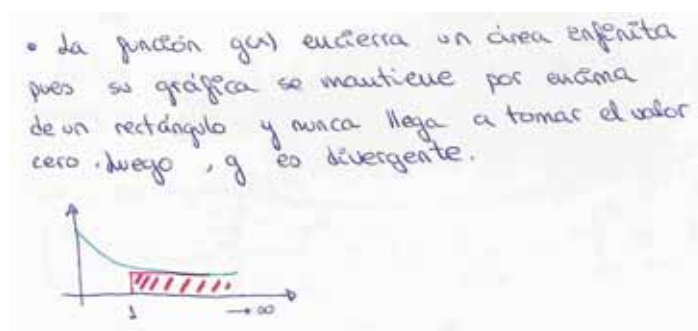 • La función g(x) encierra un área infinita
pues su gráfica se mantiene por encima
de un rectángulo y nunca llega a tomar el valor
cero. Luego, g es divergente.
1 → ∞